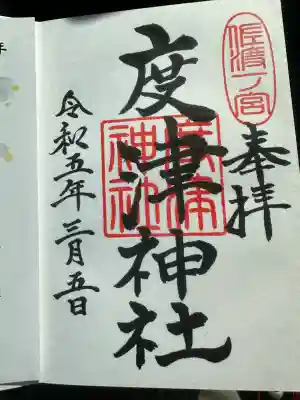 佐渡一ノ宮
奉拝
度津神社
度津
神社
令和五年三月五日